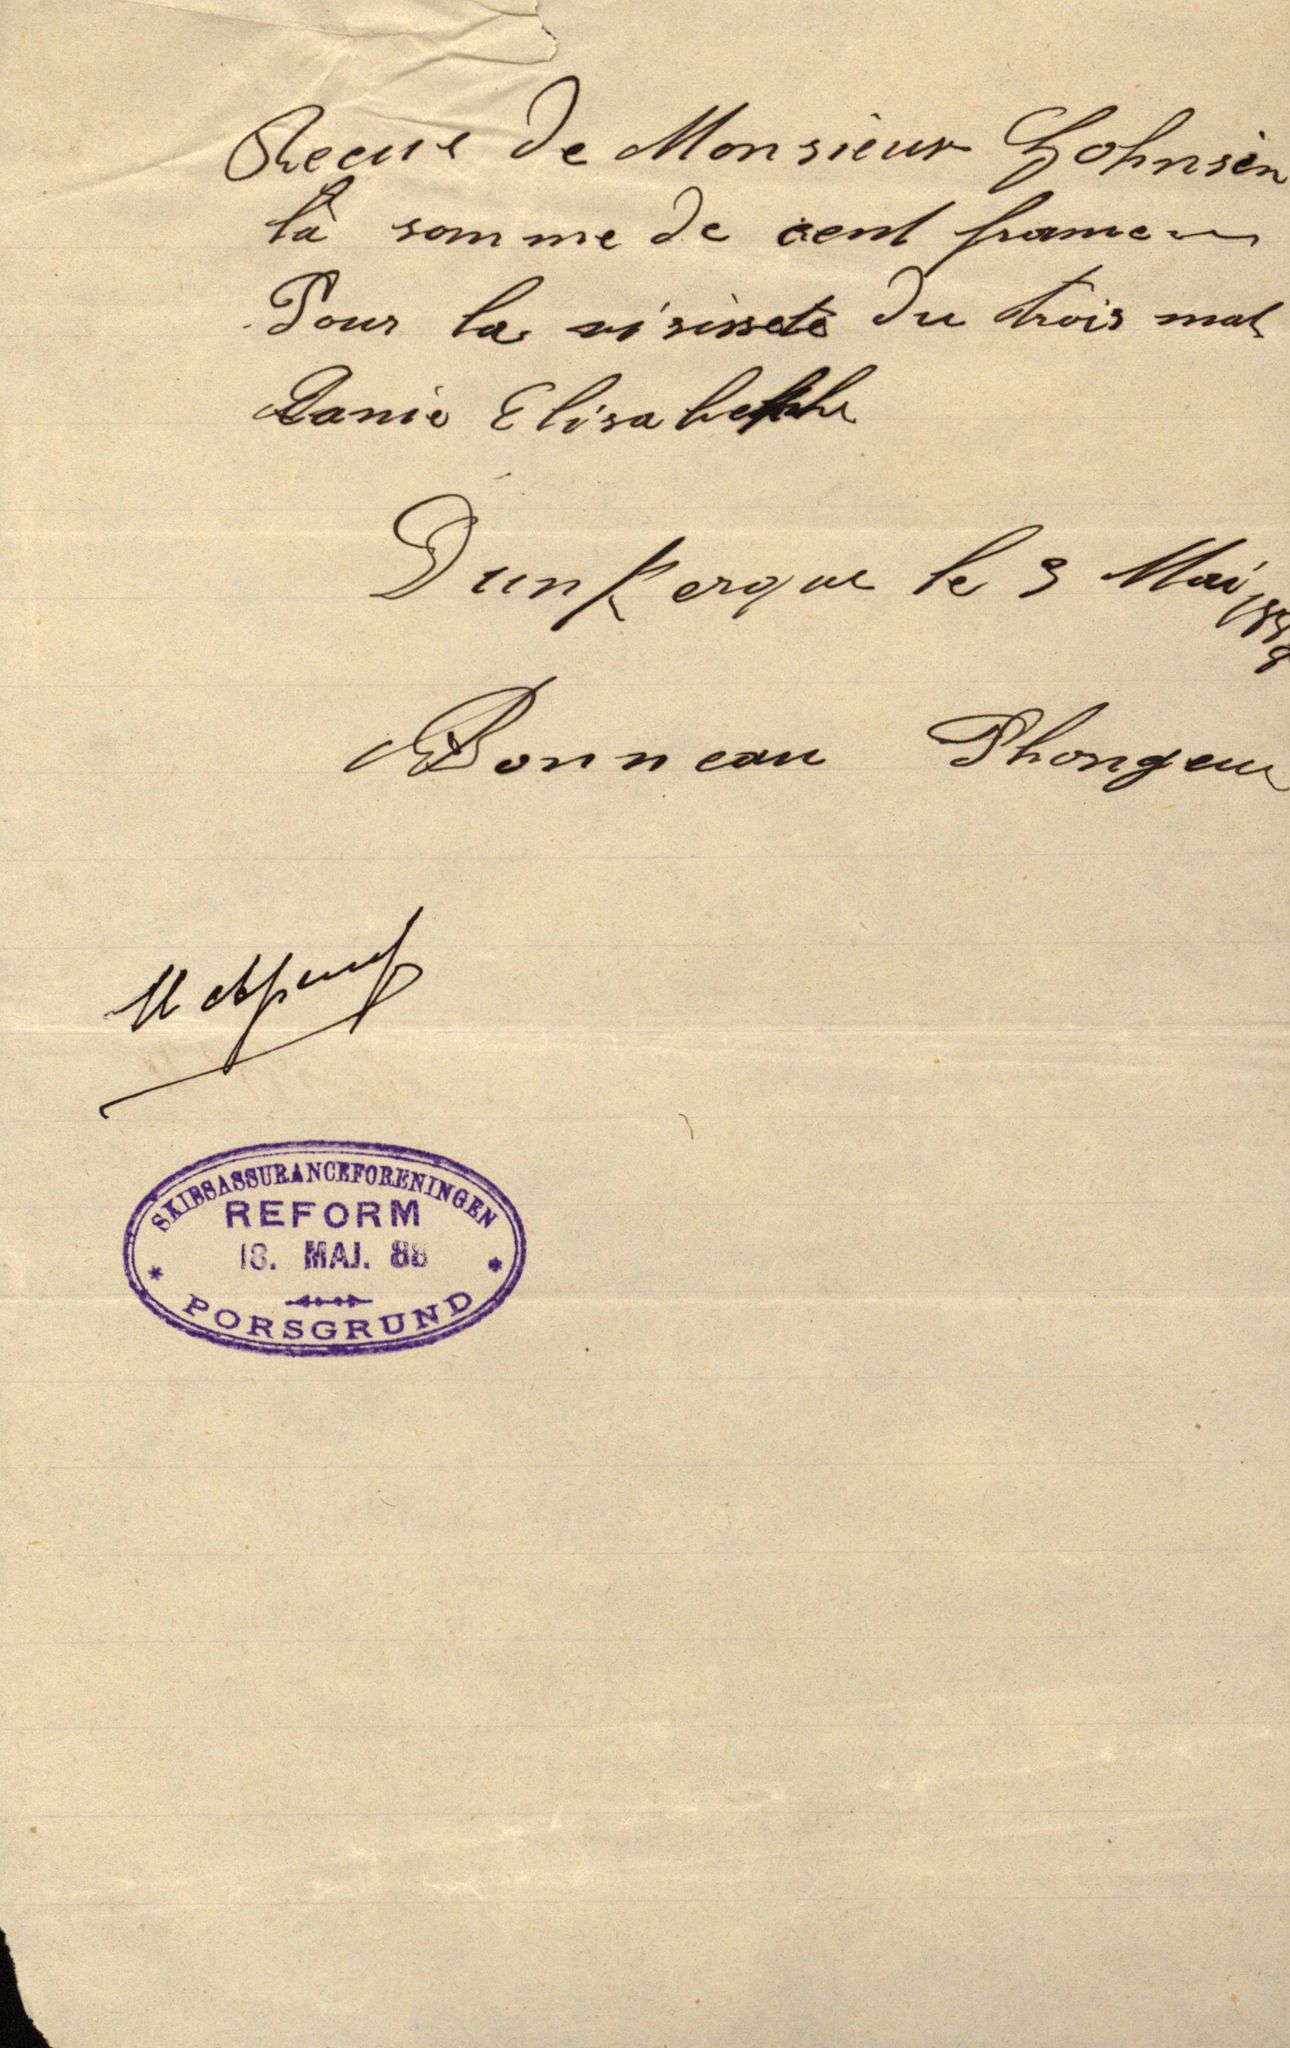 Recue de Monsieur Johnsen
la somme de cent franc
Pour la visisste du trois mat
Elisabethe
Dunkerque le 9 Mai 1888
Bonneau Plongeur
SKIBSASSURANCEFORENINGEN
REFORM
18. MAI. 88
PORSGRUND